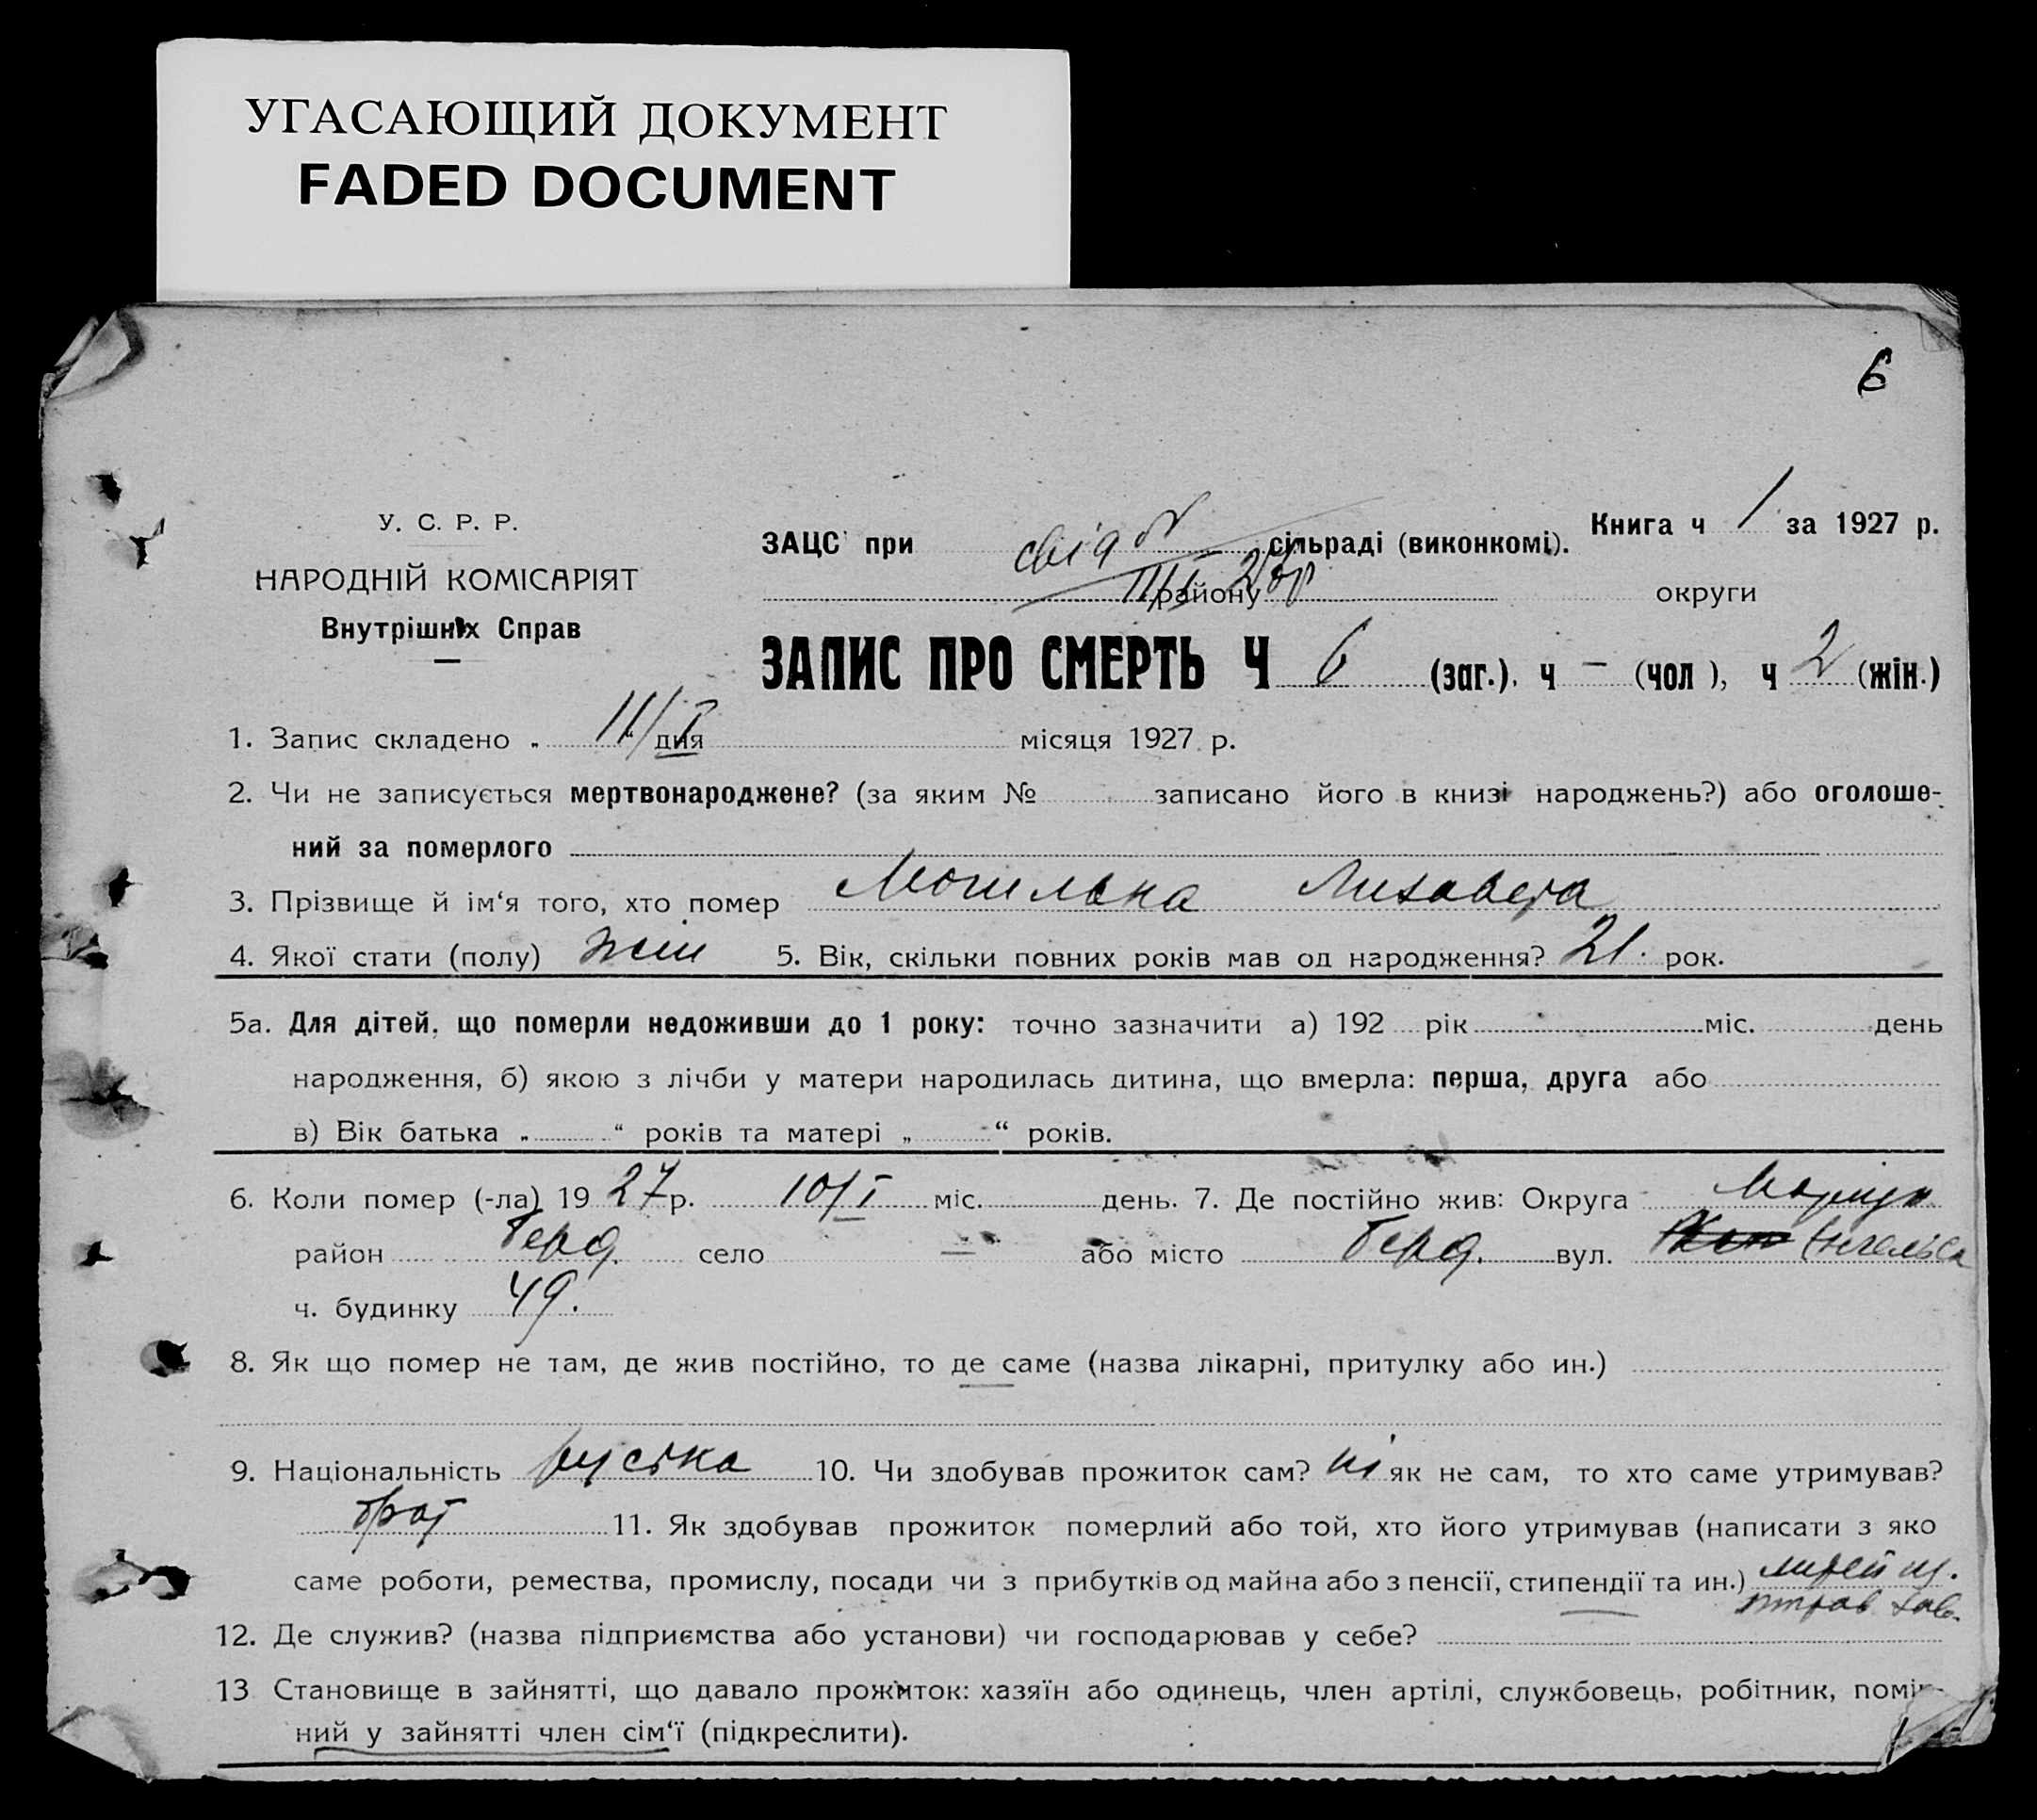 УГАСАЮЩИЙ ДОКУМЕНТ
FADED DOCUMENT
6
У. С. Р. Р.
НАРОДНІЙ КОМІСАРІЯТ
Внутрішніх Справ
Книга ч 1 за 1927 р.
ЗАЦС при сільраді (виконкомі).
району округи
ЗАПИС ПРО СМЕРТЬ Ч 6 (заг.). ч — (чол ), ч 2 (жін.)
1. Запис складено „ 11/I “ дня місяця 1927 р.
2. Чи не записується мертвонароджене? (за яким № записано його в книзі народжень?) або оголоше-
ний за померлого
3. Прізвище й ім‘я того, хто помер Могильна Лизавета
4. Якої стати (полу) жін 5. Вік, скільки повних років мав од народження? 21. рок.
5а. Для дітей, що померли недоживши до 1 року: точно зазначити а) 192 рік міс. день
народження, б) якою з лічби у матери народилась дитина, що вмерла: перша, друга або
в) Вік батька „ “ років та матері „ “ років.
6. Коли помер (-ла) 19 27 р. 10/I міс. день. 7. Де постійно жив: Округа Маріуп.
район Берд. село — або місто Берд. вул. Енгельса
ч. будинку 49.
8. Як що помер не там, де жив постійно, то де саме (назва лікарні, притулку або ин.)
9. Національність руська 10. Чи здобував прожиток сам? ні як не сам, то хто саме утримував?
брат 11. Як здобував прожиток померлий або той, хто його утримував (написати з яко
саме роботи, ремества, промислу, посади чи з прибутків од майна або з пенсії, стипендії та ин.)
12. Де служив? (назва підприємства або установи) чи господарював у себе?
13 Становище в зайнятті, що давало прожиток: хазяїн або одинець, член артілі, службовець, робітник, поміч-
ний у зайнятті член сім‘ї (підкреслити).